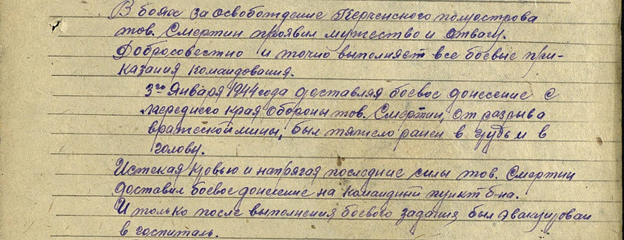 В боях за освобождение Керченского полуострова
тов. Смертин проявил мужество и отвагу.
Добросовестно и точно выполняет все боевые при-
казания командования.
3го Января 1944 года доставляя боевое донесение с
переднего края обороны тов. Смертин, от разрыва
вражеской мины, был тяжело ранен в грудь и в
голову.
Истекая кровью и напрягая последние силы тов. Смертин
доставил боевое донесение на командный пункт б-на.
И только после выполнения боевого задания был эвакуирован
в госпиталь.